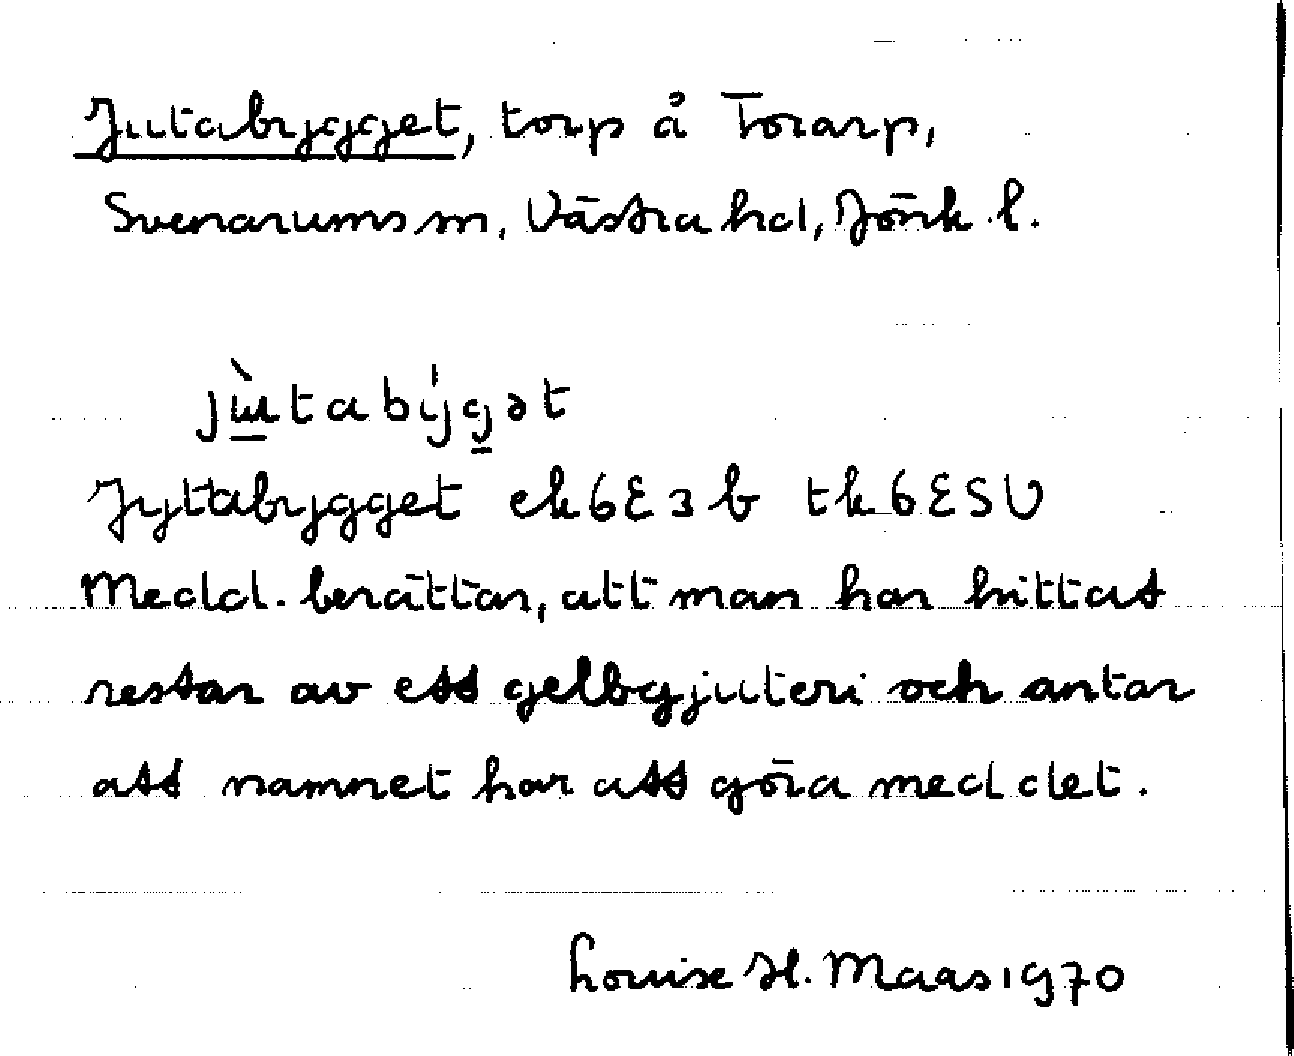 Jutabygget, torp å Torarp,
Svenarums sn, Västra hd, Jönk. l.
jùtabýgət
Jyttabygget ek6E3b tk6ESV
Medd. berättar, att man har hittat
restar av ett gelbgjuteri och antar
att namnet har att göra med det.
Louise H. Maas 1970